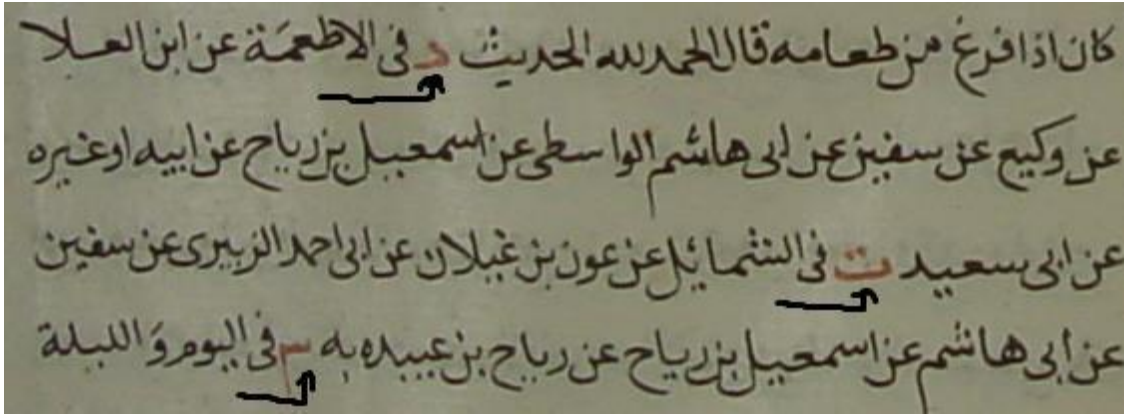 كان اذا فرغ من طعامه قال الحمد لله الحديث د فى الاطعمَة عن ابن العلا
عن وكيع عن سفين عن ابى هاشم الواسطى عن اسمعيل بن رياح عن ابيه او غيره
عن ابى سعيد ت فى الشمائل عن عون بن غيلان عن ابى احمد الزبيرى عن سفين
عن ابى هاشم عن اسمعيل بن رياح عن رياح بن عبيده به س فى اليوم وَ الليلة